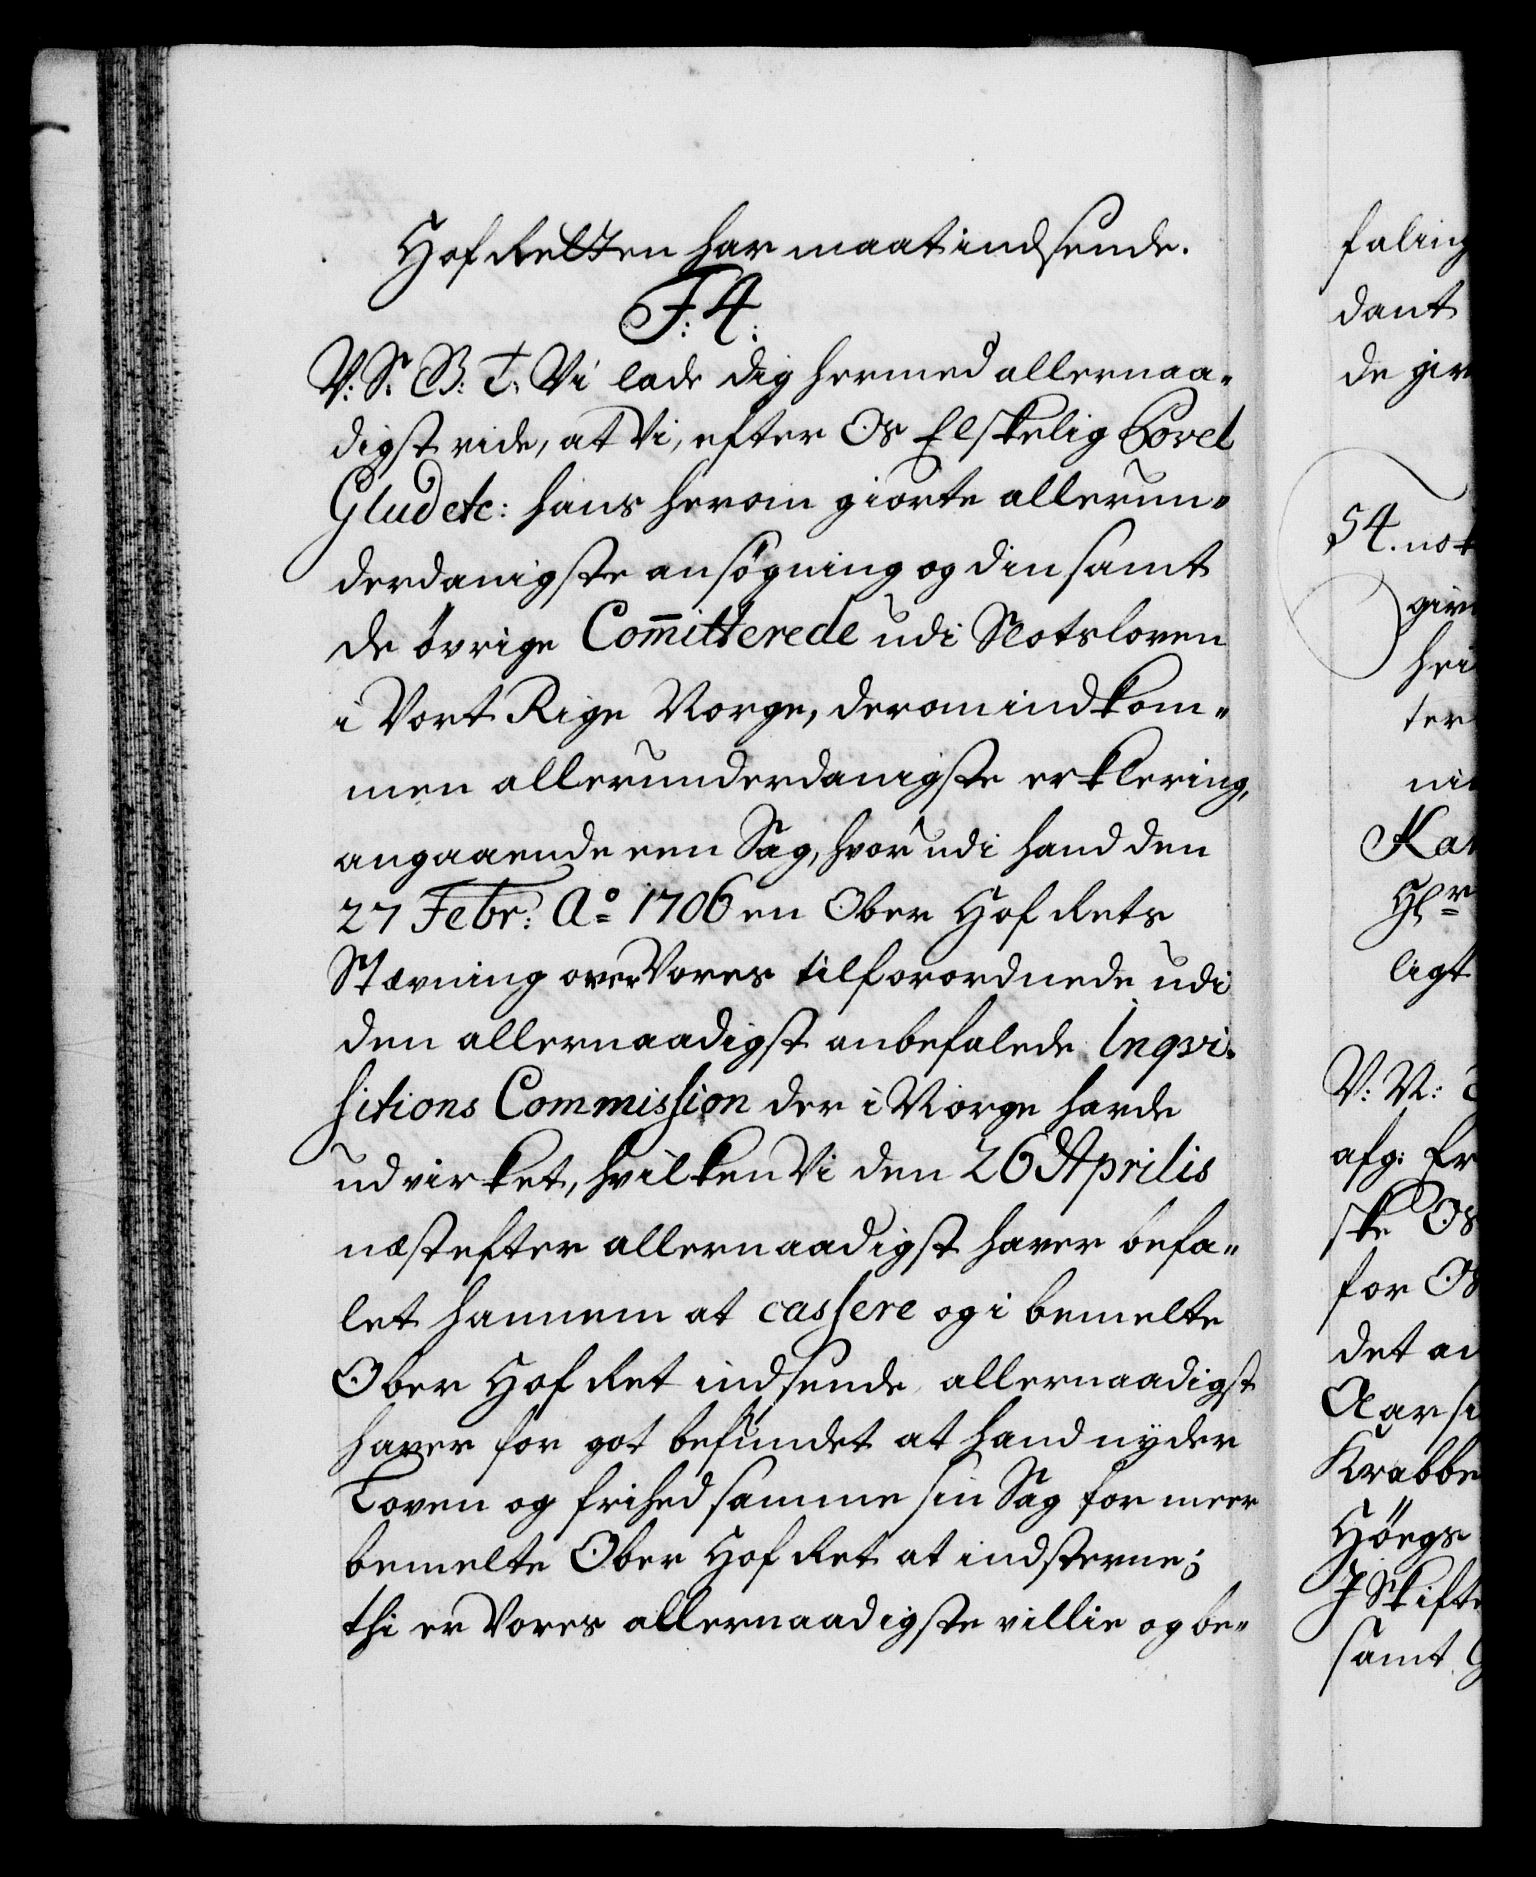 Hof Retten har maat indsende.
F: 4.
V: S: B: T: Vi lade dig hermed allernaa-
digst vide, at Vi, efter Os Elskelig Povel
Glud etc: hans herom giorte allerun-
derdanigste ansøgning og din samt
de øvrige Com̅itterede udi Slotsloven
i Vort Rige Norge, derom indkom-
men allerunderdanigste erklering,
angaaende een Sag, hvor udi hand den
27 Febr: Ao 1706 en Ober Hof Rets
Stævning over Vores tilforordnede udi
den allernaadigst anbefalede Inqvi-
sitions Commission der i Norge hafde
udvirket, hvilken Vi den 26 Aprilis
næst efter allernaadigst haver befa-
let hannem at cassere og i bemelte
Ober Hof Ret indsende, allernaadigst
haver for got befundet at hand nyder
Loven og frihed samme sin Sag for meer
bemelte Ober Hof Ret at indstevne;
thi er Vores allernaadigste villie og be-
faling
dant
de gir
54. not
giv
hei
ter
ni
Kar
Hr
ligt
V: N:
afg: Er
ske Os
for Os
det an
Aars
Krabbe
Høegs
I Skifte
samt